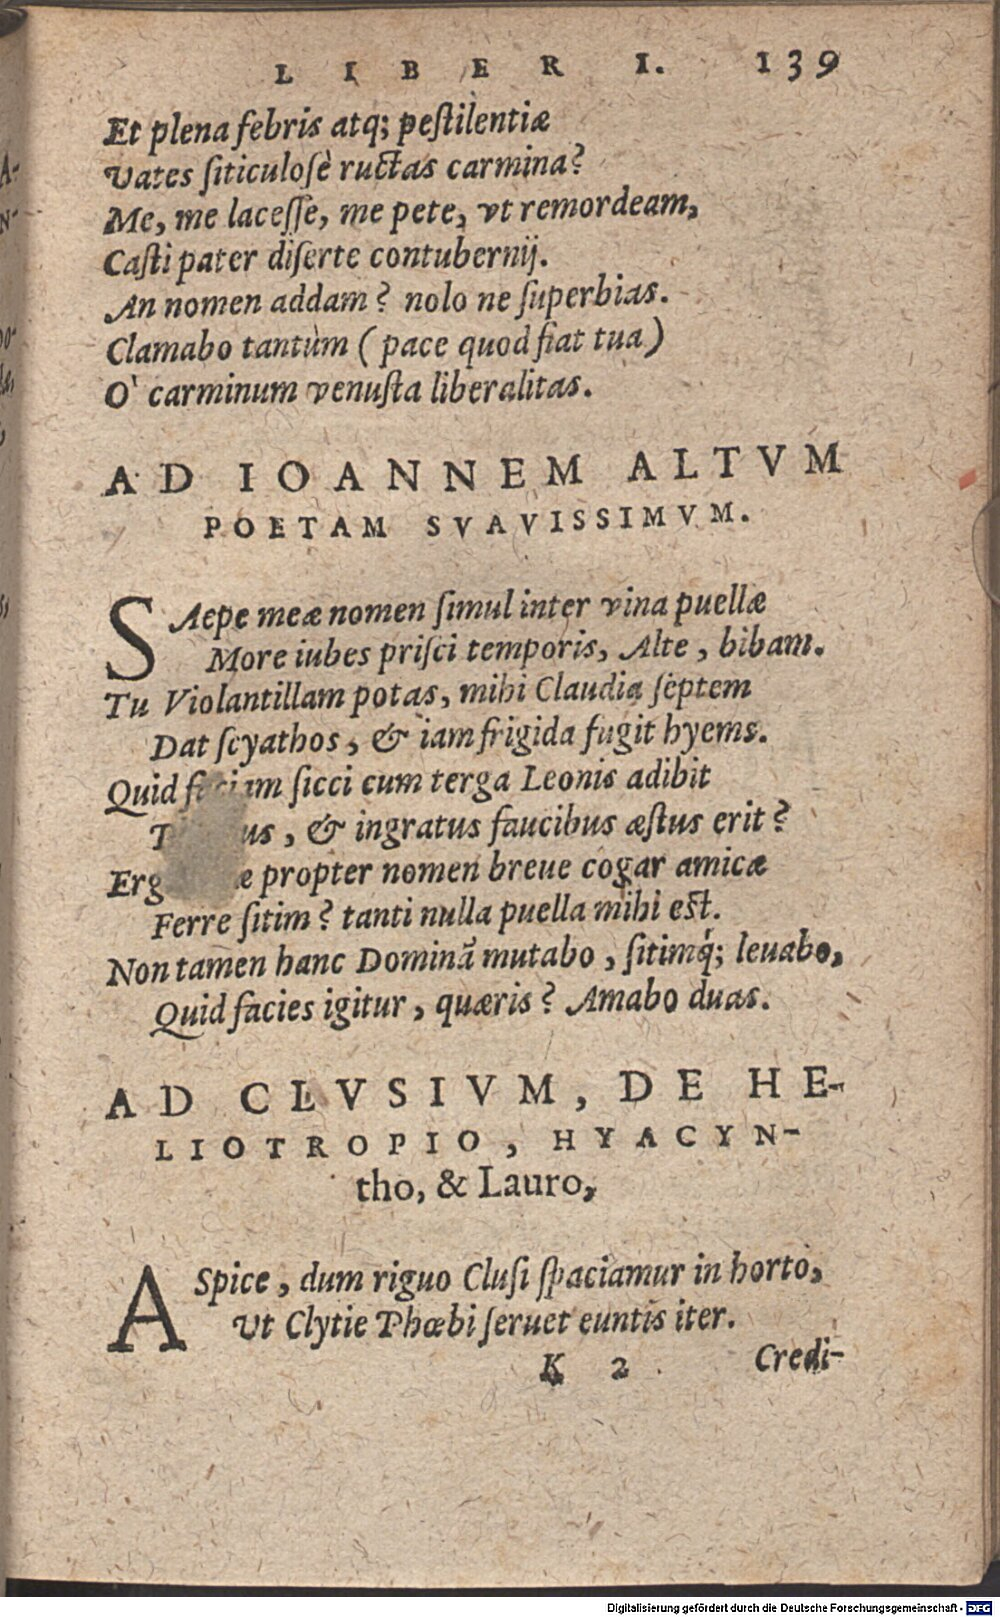 LIBER I. 139
Et plena febris atq; peſtilentiæ
Vates ſiticuloſè ructas carmina?
Me, me laceſſe, me pete, vt remordeam,
Caſti pater diſerte contubernij.
An nomen addam? nolo ne ſuperbias.
Clamabo tantùm (pace quod fiat tua)
O' carminum venuſta liberalitas.
AD IOANNEM ALTVM
POETAM SVAVISSIMVM.
SAepe meæ nomen ſimul inter vina puellæ
More iubes priſci temporis, Alte, bibam.
Tu Violantillam potas, mihi Claudia ſeptem
Dat ſcyathos, & iam frigida fugit hyems.
Quid ſicci cum terga Leonis adibit
, & ingratus faucibus æſtus erit?
propter nomen breue cogar amicæ
Ferre ſitim? tanti nulla puella mihi eſt.
Non tamen hanc Dominã mutabo, ſitimq́; leuabo,
Quid facies igitur, quæris? Amabo duas.
AD CLVSIVM, DE HE-
LIOTROPIO, HYACYN-
tho, & Lauro,
ASpice, dum riguo Cluſi ſpaciamur in horto,
Vt Clytie Phœbi ſeruet euntis iter.
K 2 Credi-
Digitalisierung gefördert durch die Deutsche Forschungsgemeinschaft - DFG